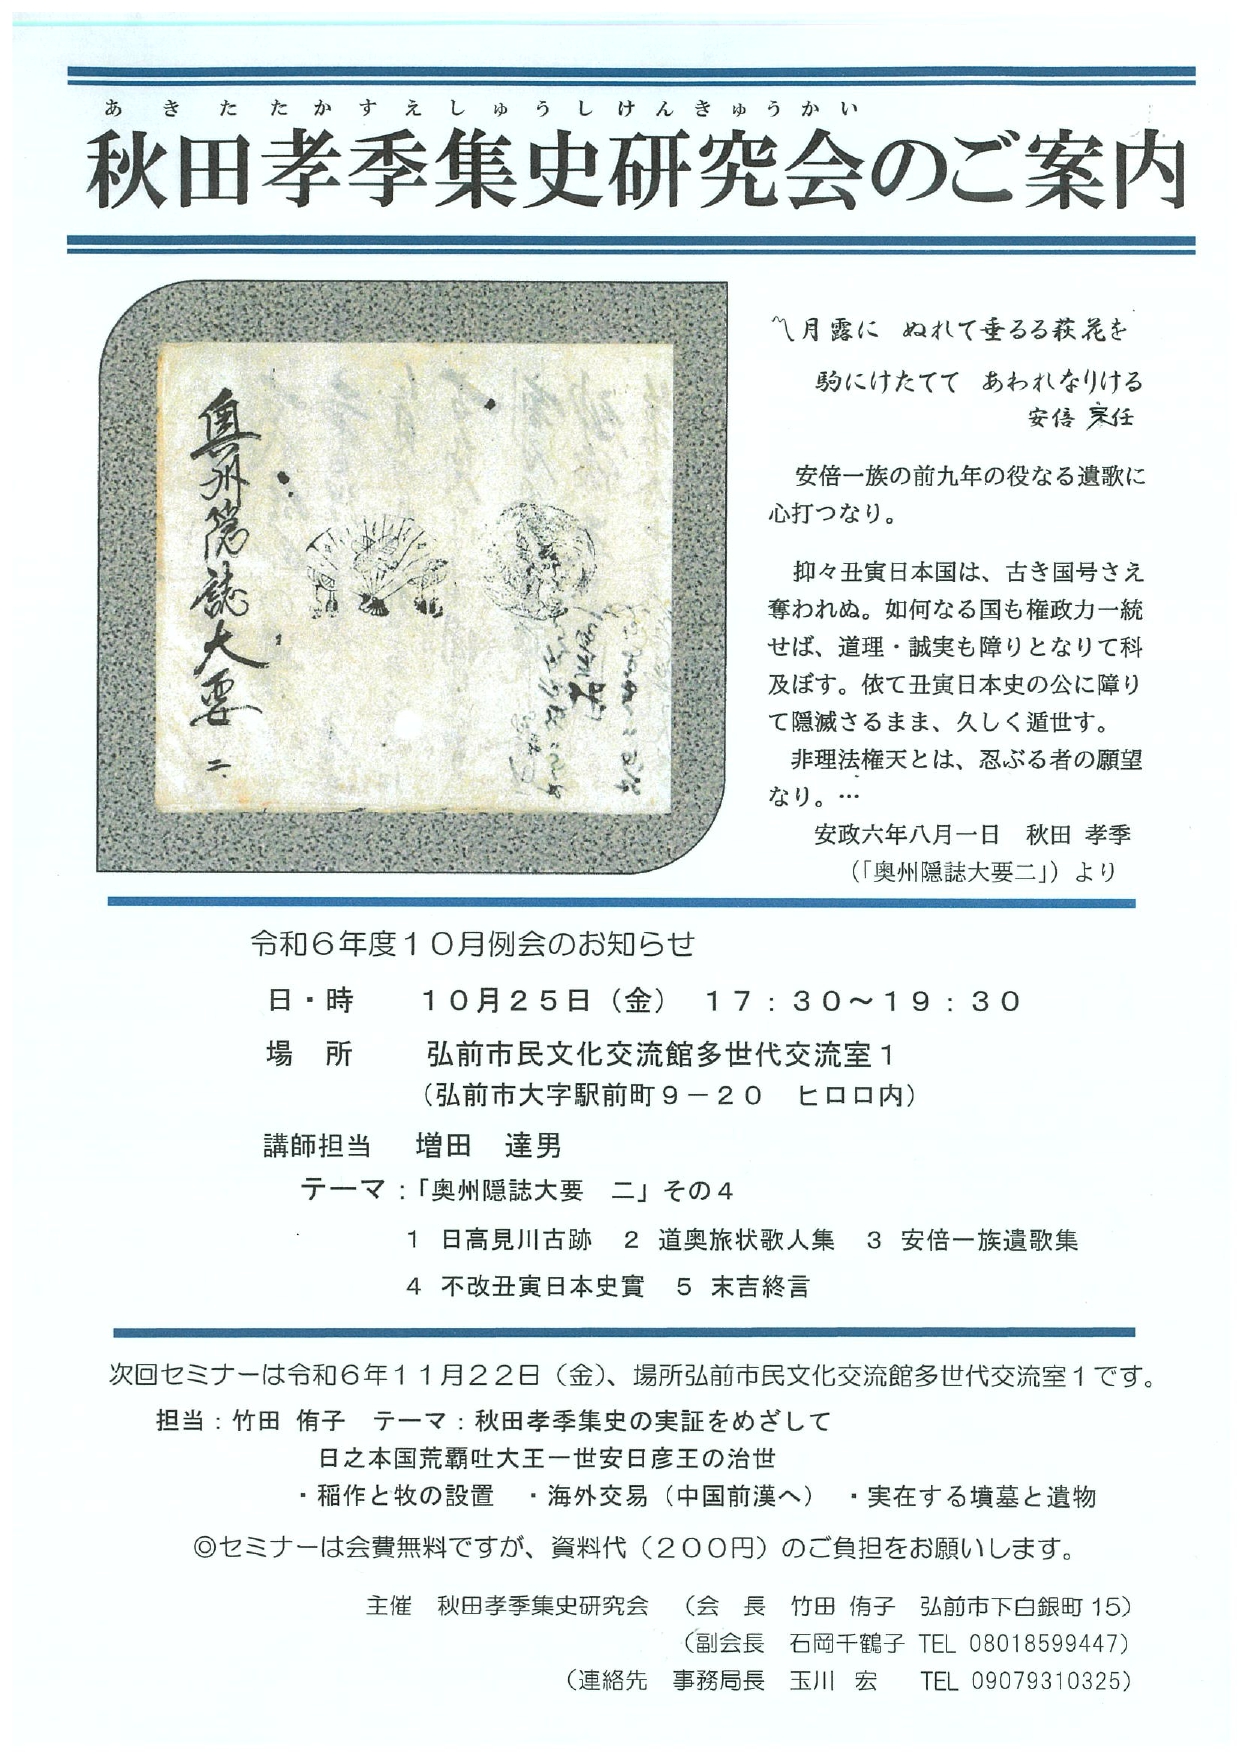 あきたたかすえしゅうしけんきゅうかい
秋田孝季集史研究会のご案内
奥州隠誌大要 二
八月露に ぬれて垂るる萩花を
駒にけたてて あわれなりける
安倍 宗任
安倍一族の前九年の役なる遺歌に
心打つなり。
抑々丑寅日本国は、古き国号さえ
奪われぬ。如何なる国も権政力一統
せば、道理・誠実も障りとなりて科
及ぼす。依て丑寅日本史の公に障り
て隠滅さるまま、久しく遁世す。
非理法権天とは、忍ぶる者の願望
なり。…
安政六年八月一日 秋田 孝季
（「奥州隠誌大要二」）より
令和６年度１０月例会のお知らせ
日・時 １０月２５日（金） １７：３０～１９：３０
場 所 弘前市民文化交流館多世代交流室１
（弘前市大字駅前町９－２０ ヒロロ内）
講師担当 増田 達男
テーマ：「奥州隠誌大要 二」その４
１ 日高見川古跡 ２ 道奥旅状歌人集 ３ 安倍一族遺歌集
４ 不改丑寅日本史實 ５ 末吉終言
次回セミナーは令和６年１１月２２日（金）、場所弘前市民文化交流館多世代交流室１です。
担当：竹田 侑子 テーマ：秋田孝季集史の実証をめざして
日之本国荒覇吐大王一世安日彦王の治世
・稲作と牧の設置 ・海外交易（中国前漢へ） ・実在する墳墓と遺物
◎セミナーは会費無料ですが、資料代（２００円）のご負担をお願いします。
主催 秋田孝季集史研究会 （会 長 竹田 侑子 弘前市下白銀町 15）
（副会長 石岡千鶴子 TEL 08018599447）
（連絡先 事務局長 玉川 宏 TEL 09079310325）